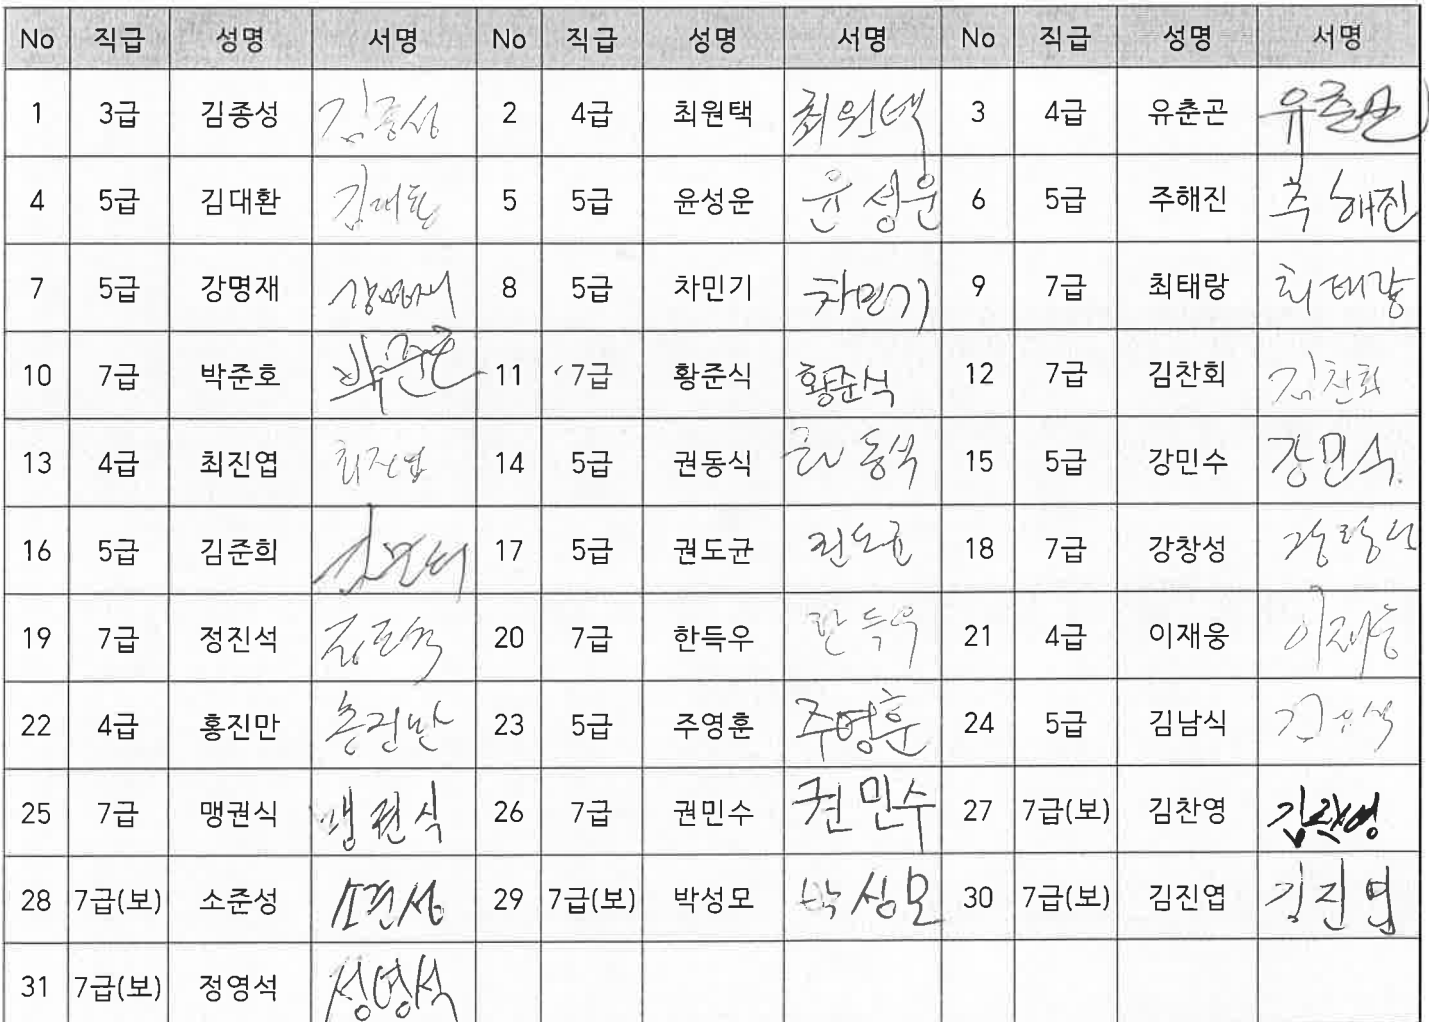 No 직급 성명 서명 No 직급 성명 서명 No 직급 성명 서명
1 3급 김종성 김종성 2 4급 최원택 최원택 3 4급 유춘곤 유춘곤
4 5급 김대환 김대환 5 5급 윤성운 윤성운 6 5급 주해진 주해진
7 5급 강명재 강명재 8 5급 차민기 차민기 9 7급 최태랑 최태랑
10 7급 박준호 박준호 11 7급 황준식 황준식 12 7급 김찬회 김찬회
13 4급 최진엽 최진엽 14 5급 권동식 권동식 15 5급 강민수 강민수
16 5급 김준희 17 5급 권도균 권도균 18 7급 강창성 강창성
19 7급 정진석 20 7급 한득우 한득우 21 4급 이재웅 이재웅
22 4급 홍진만 홍진만 23 5급 주영훈 주영훈 24 5급 김남식
25 7급 맹권식 맹권식 26 7급 권민수 권민수 27 7급(보) 김찬영 김찬영
28 7급(보) 소준성 소준성 29 7급(보) 박성모 박성모 30 7급(보) 김진엽 김진엽
31 7급(보) 정영석 정영석